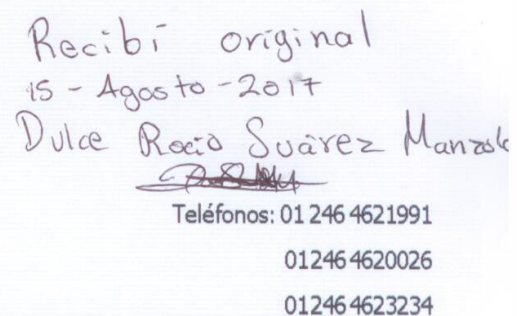 Recibí original
15 - Agosto - 2017
Dulce Rocio Suárez
Teléfonos: 01 246 4621991
01246 4620026
01246 4623234